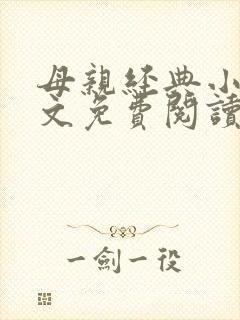 母親經典小
文免費閱讀
一劍一役